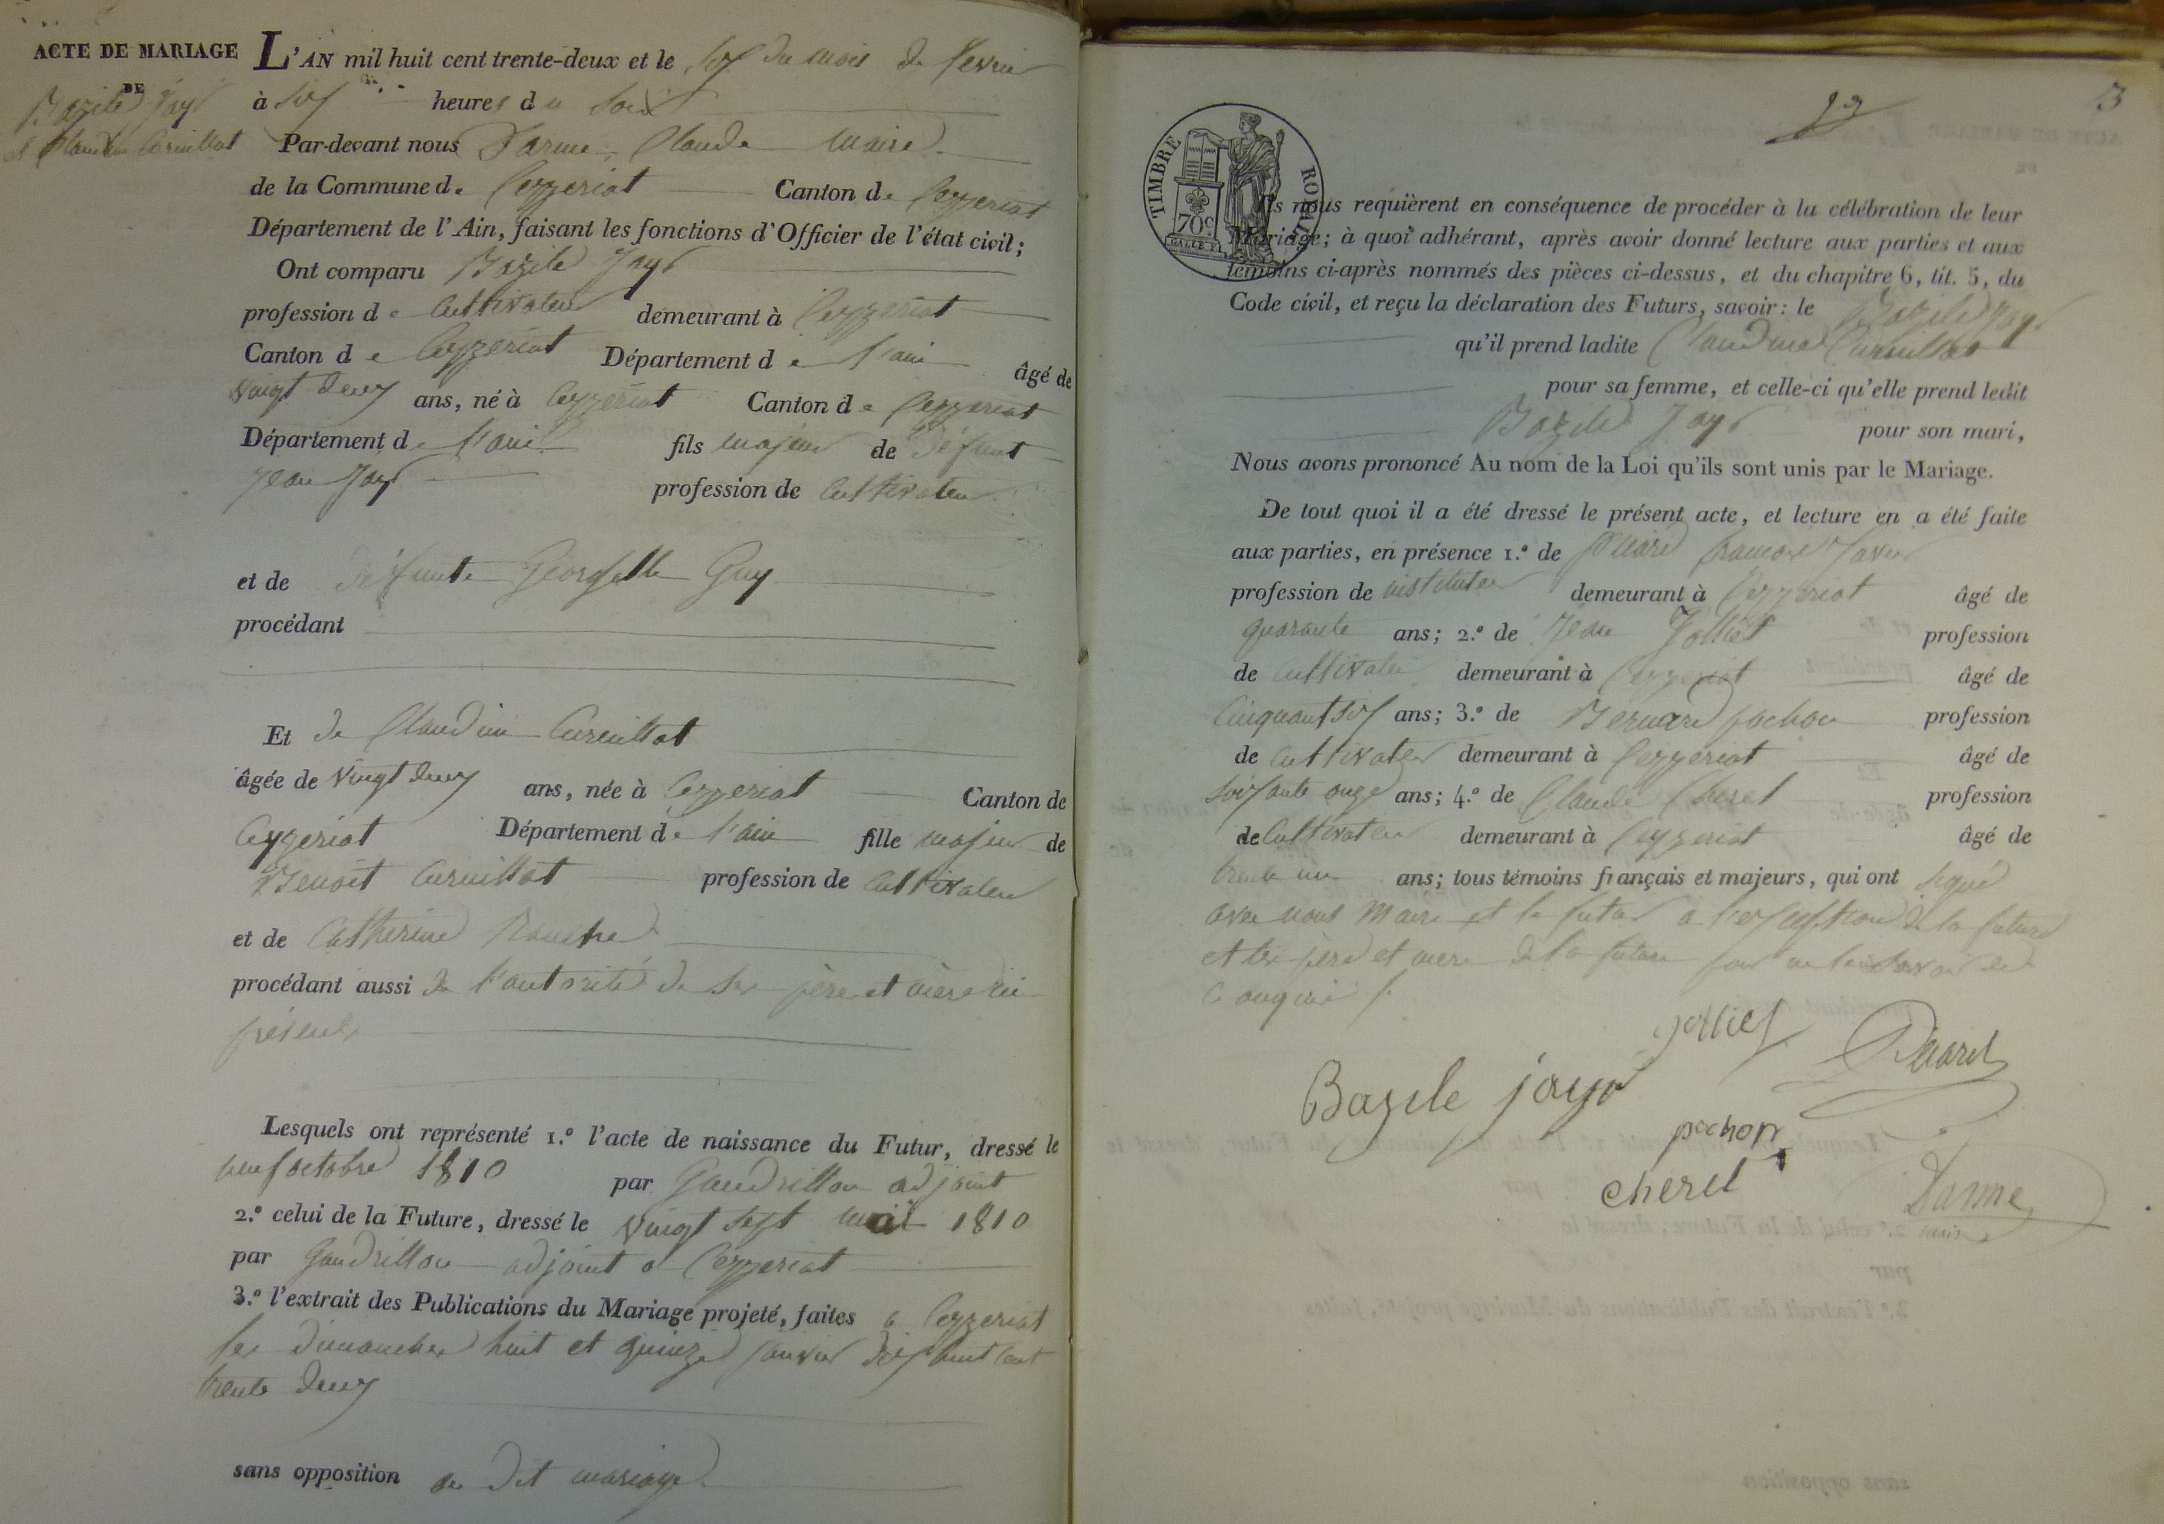 ACTE DE MARIAGE
DE
Bazile Jayr
et Claudine Curnillat
L'AN mil huit cent trente-deux et le six du mois de fevrier
à six heures du soir
Par-devant nous Darme, Claude Maire
de la Commune de Ceyzeriat Canton de Ceyzeriat
Département de l'Ain, faisant les fonctions d'Officier de l'état civil;
Ont comparu Bazile Jayr
profession de Cultivateur demeurant à Ceyzeriat
Canton de Ceyzeriat Département de l'ain âgé de
vingt deux ans, né à Ceyzeriat Canton de Ceyzeriat
Département de l'ain fils majeur de défunt
Jean Jayr profession de cultivateur
et de défunte Guy
procédant
Et de Claudine Curnillat
âgée de vingt deux ans, née à Ceyzeriat Canton de
Ceyzeriat Département de l'ain fille majeur de
Benoit Curnillat profession de Cultivateur
et de Catherine
procédant aussi de l'autorité de ses père et mère ici
présents
Lesquels ont représenté 1.º l'acte de naissance du Futur, dressé le
neuf octobre 1810 par Gaudrillon adjoint
2.º celui de la Future, dressé le vingt sept 1810
par Gaudrillon adjoint a Ceyzeriat
3.º l'extrait des Publications du Mariage projeté, faites a Ceyzeriat
les dimanches huit et quinze janvier dix huit cent
trente deux
sans opposition au dit mariage
23
3
TIMBRE ROYAL
70c
Ils nous requièrent en conséquence de procéder à la célébration de leur
Mariage; à quoi adhérant, après avoir donné lecture aux parties et aux
témoins ci-après nommés des pièces ci-dessus, et du chapitre 6, tit. 5, du
Code civil, et reçu la déclaration des Futurs, savoir: le Bazile Jayr
qu'il prend ladite Claudine Curnillat
pour sa femme, et celle-ci qu'elle prend ledit
Bazile Jayr pour son mari,
Nous avons prononcé Au nom de la Loi qu'ils sont unis par le Mariage.
De tout quoi il a été dressé le présent acte, et lecture en a été faite
aux parties, en présence 1.º de françois Xavier
profession de instituteur demeurant à Ceyzeriat âgé de
quarante ans; 2.º de Jean Jolliet profession
de cultivateur demeurant à Ceyzeriat âgé de
Cinquant six ans; 3.º de Bernard pochon profession
de Cultivateur demeurant à Ceyzeriat âgé de
soixante onze ans; 4.º de Claude Cheret profession
de Cultivateur demeurant à Ceyzeriat âgé de
trente un ans; tous témoins français et majeurs, qui ont signé
avec nous Maire et le futur a l'exseption de la future
et les père et mere de la future pour ne le savoir de
ce enquis
jolliet
Bazile jayr
pochon
cheret
Darme
maire